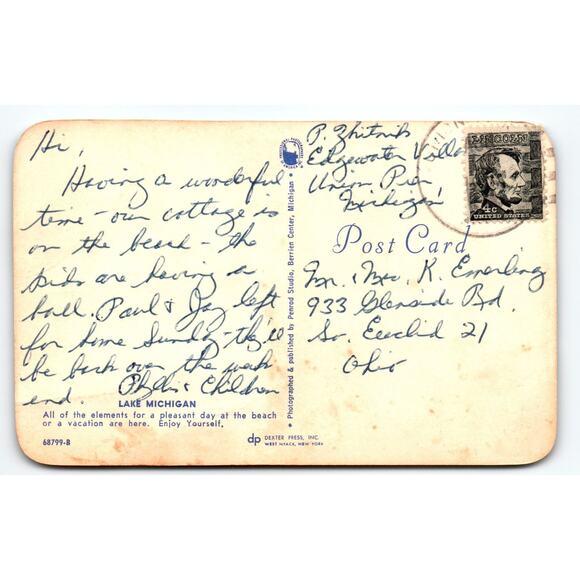 Hi,
Having a wonderful
time - our cottage is
on the beach - the
kids are having a
ball. Paul & Jay left
for home Sunday - they'll
be back over the week
end. Phyllis & Children
LAKE MICHIGAN
All of the elements for a pleasant day at the beach
or a vacation are here. Enjoy Yourself.
68799-B
Photographed & published by Penrod Studio, Berrien Center, Michigan
dp DEXTER PRESS, INC.
WEST NYACK, NEW YORK
P. Zhitnik
Edgewater Villa
Union Pier
Michigan
LINCOLN
4c
UNITED STATES
Post Card
Mr. & Mrs. K. Emerling
933 Glenside Rd.
So. Euclid 21
Ohio